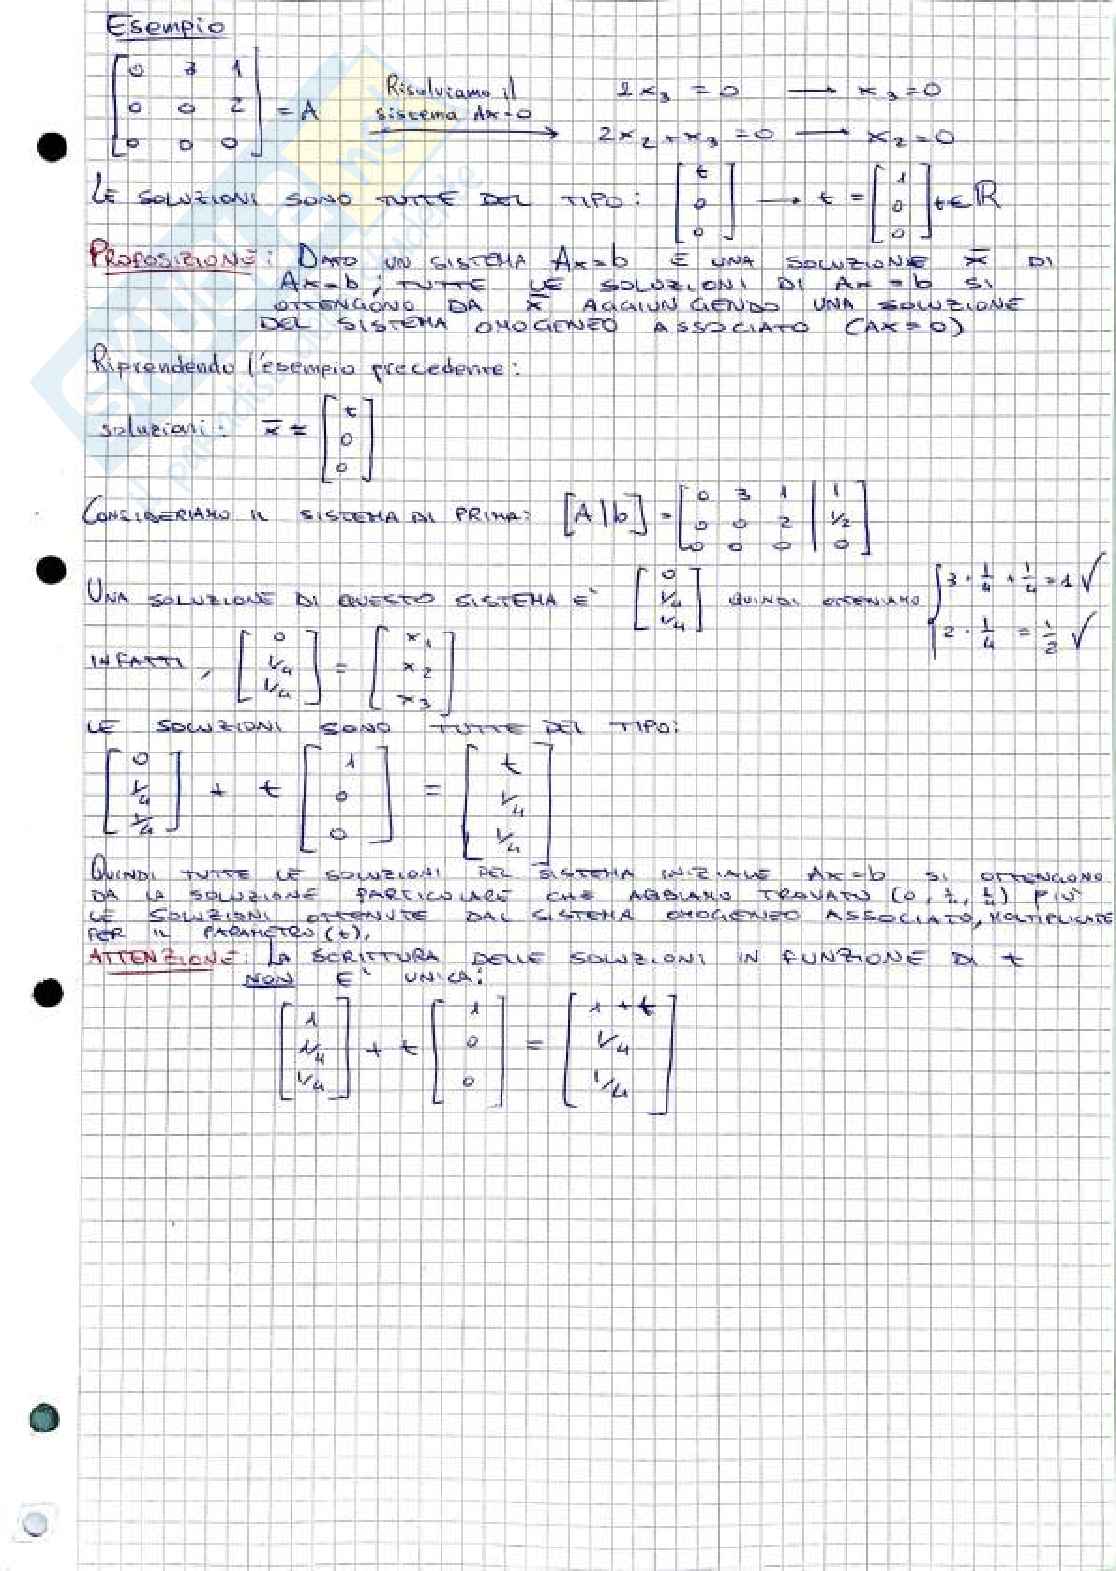 Esempio
[0 3 1
0 0 2
0 0 0] = A
Risolviamo il
sistema Ax=0
2x₃ = 0 → x₃=0
2x₂+x₃=0 → x₂=0
LE SOLUZIONI SONO TUTTE DEL TIPO: [t 0 0] → t = [1 0 0] t∈ℝ
PROPOSIZIONE: DATO UN SISTEMA Ax=b E UNA SOLUZIONE x̄ DI
Ax=b; TUTTE LE SOLUZIONI DI Ax=b SI
OTTENGONO DA x̄ AGGIUNGENDO UNA SOLUZIONE
DEL SISTEMA OMOGENEO ASSOCIATO (Ax=0)
Riprendendo l'esempio precedente:
soluzioni: x̄ = [t 0 0]
CONSIDERIAMO IL SISTEMA DI PRIMA: [A|b] = [0 3 1 | 1
0 0 2 | 1/2
0 0 0 | 0]
UNA SOLUZIONE DI QUESTO SISTEMA E' [0 1/4 1/4] QUINDI OTTENIAMO
3·1/4+1/4=1 √
2·1/4 = 1/2 √
INFATTI, [0 1/4 1/4] = [x₁ x₂ x₃]
LE SOLUZIONI SONO TUTTE DEL TIPO:
[0 1/4 1/4] + t [1 0 0] = [t 1/4 1/4]
QUINDI TUTTE LE SOLUZIONI DEL SISTEMA INIZIALE Ax=b SI OTTENGONO
DA LA SOLUZIONE PARTICOLARE CHE ABBIAMO TROVATO (0, 1/4, 1/4) PIU'
LE SOLUZIONI OTTENUTE DAL SISTEMA OMOGENEO ASSOCIATO, MOLTIPLICATE
PER IL PARAMETRO (t).
ATTENZIONE: LA SCRITTURA DELLE SOLUZIONI IN FUNZIONE DI t
NON E' UNICA:
[1 1/4 1/4] + t [1 0 0] = [1+t 1/4 1/4]